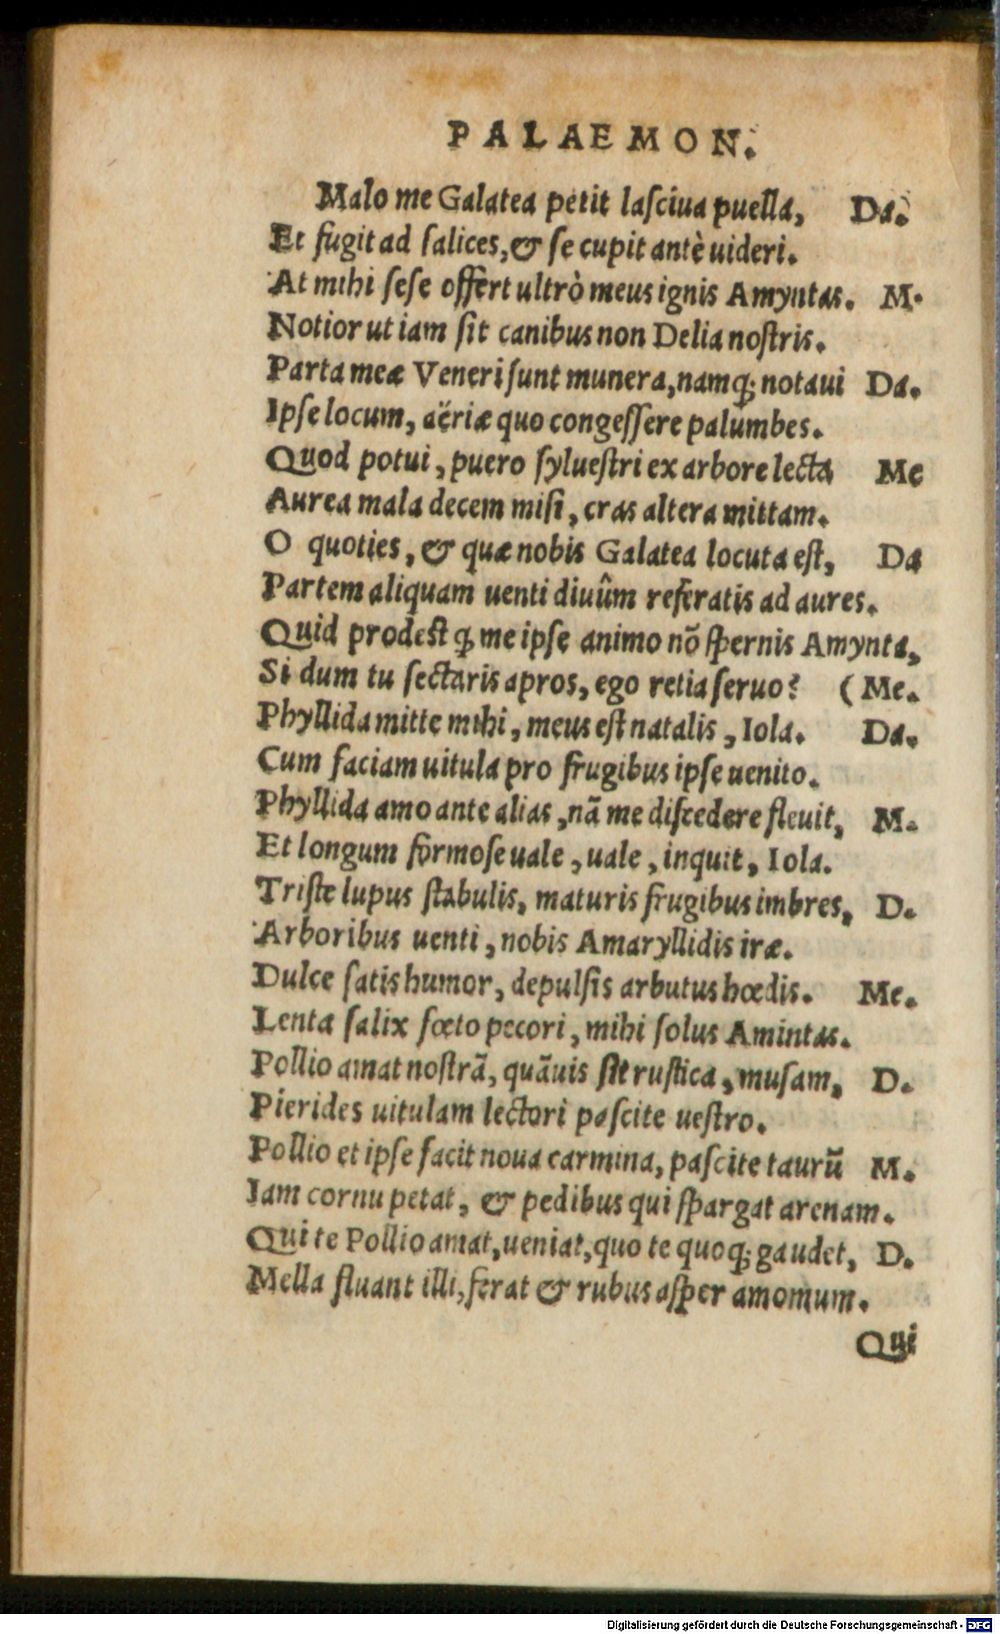 PALAEMON.
Malo me Galatea petit lasciua puella, Da.
Et fugit ad salices, & se cupit antè uideri.
At mihi sese offert ultrò meus ignis Amyntas. M.
Notior ut iam sit canibus non Delia nostris.
Parta meæ Veneri sunt munera, namq; notaui Da.
Ipse locum, aëriæ quo congessere palumbes.
Quod potui, puero syluestri ex arbore lecta Me
Aurea mala decem misi, cras altera mittam.
O quoties, & quæ nobis Galatea locuta est, Da
Partem aliquam uenti diuûm referatis ad aures.
Quid prodest ꝙ me ipse animo nõ spernis Amynta,
Si dum tu sectaris apros, ego retia seruo? (Me.
Phyllida mitte mihi, meus est natalis, Iola. Da.
Cum faciam uitula pro frugibus ipse uenito.
Phyllida amo ante alias, nã me discedere fleuit, M.
Et longum formose uale, uale, inquit, Iola.
Triste lupus stabulis, maturis frugibus imbres, D.
Arboribus uenti, nobis Amaryllidis iræ.
Dulce satis humor, depulsis arbutus hœdis. Me.
Lenta salix fœto pecori, mihi solus Amintas.
Pollio amat nostrã, quãuis sit rustica, musam, D.
Pierides uitulam lectori pascite uestro.
Pollio et ipse facit noua carmina, pascite taurũ M.
Iam cornu petat, & pedibus qui spargat arenam.
Qui te Pollio amat, ueniat, quo te quoq; gaudet, D.
Mella fluant illi, ferat & rubus asper amomum.
Qui
Digitalisierung gefördert durch die Deutsche Forschungsgemeinschaft - DFG